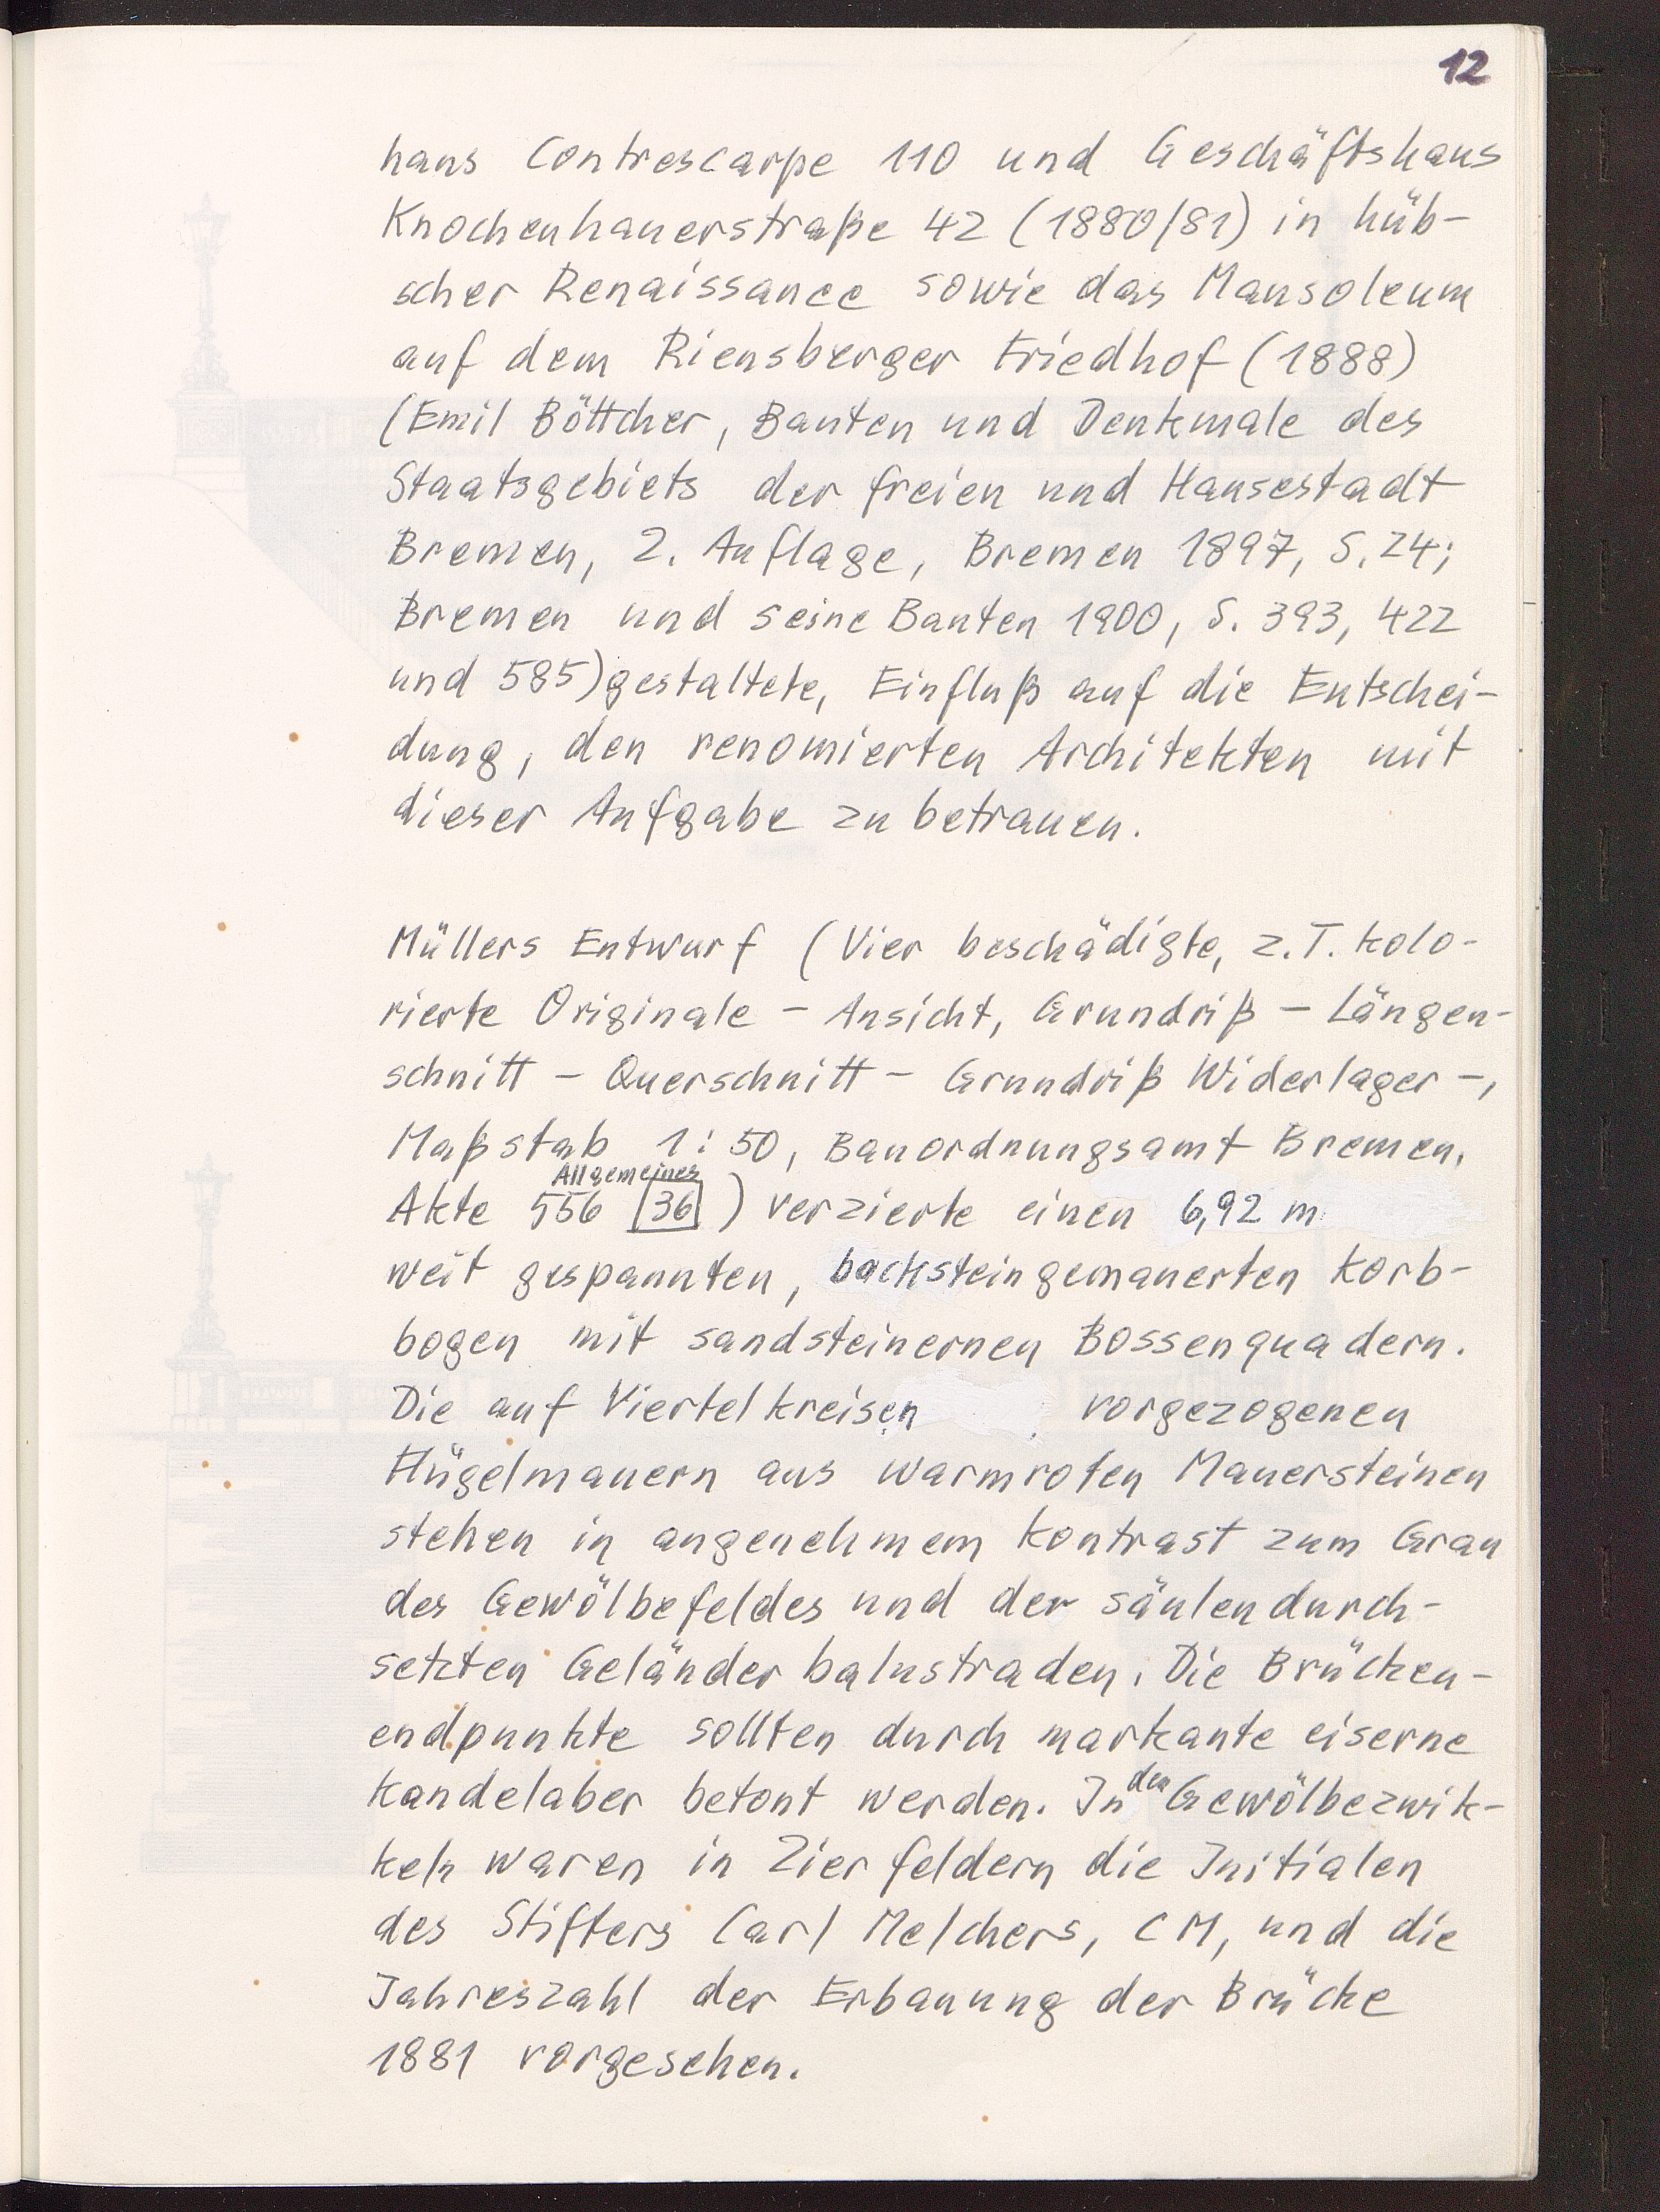 12
haus Contrescarpe 110 und Geschäftshaus
Knochenhauerstraße 42 (1880/81) in hüb-
scher Renaissance sowie das Mausoleum
auf dem Riensberger Friedhof (1888)
(Emil Böttcher, Bauten und Denkmale des
Staatsgebiets der freien und Hansestadt
Bremen, 2. Auflage, Bremen 1897, S. 24;
Bremen und seine Bauten 1900, S. 393, 422
und 585) gestaltete, Einfluß auf die Entschei-
dung, den renomierten Architekten mit
dieser Aufgabe zu betrauen.
Müllers Entwurf (Vier beschädigte, z.T. kolo-
rierte Originale - Ansicht, Grundriß - Längen-
schnitt - Querschnitt - Grundriß Widerlager -,
Maßstab 1:50, Bauordnungsamt Bremen,
Allgemeines
Akte 556 36) verzierte einen 6,92 m
weit gespannten, backsteingemauerten Korb-
bogen mit sandsteinernen Bossenquadern.
Die auf Viertelkreisen vorgezogenen
Flügelmauern aus warmroten Mauersteinen
stehen in angenehmem Kontrast zum Grau
des Gewölbefeldes und der säulendurch-
setzten Geländerbalustraden. Die Brücken-
endpunkte sollten durch markante eiserne
Kandelaber betont werden. In den Gewölbezwik-
keln waren in Zierfeldern die Initialen
des Stifters Carl Melchers, CM, und die
Jahreszahl der Erbauung der Brücke
1881 vorgesehen.